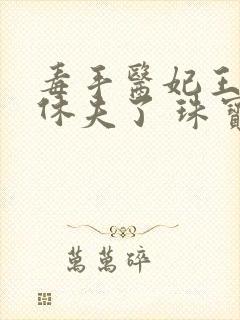 毒手醫妃王
休夫了 珠寶
萬萬碎